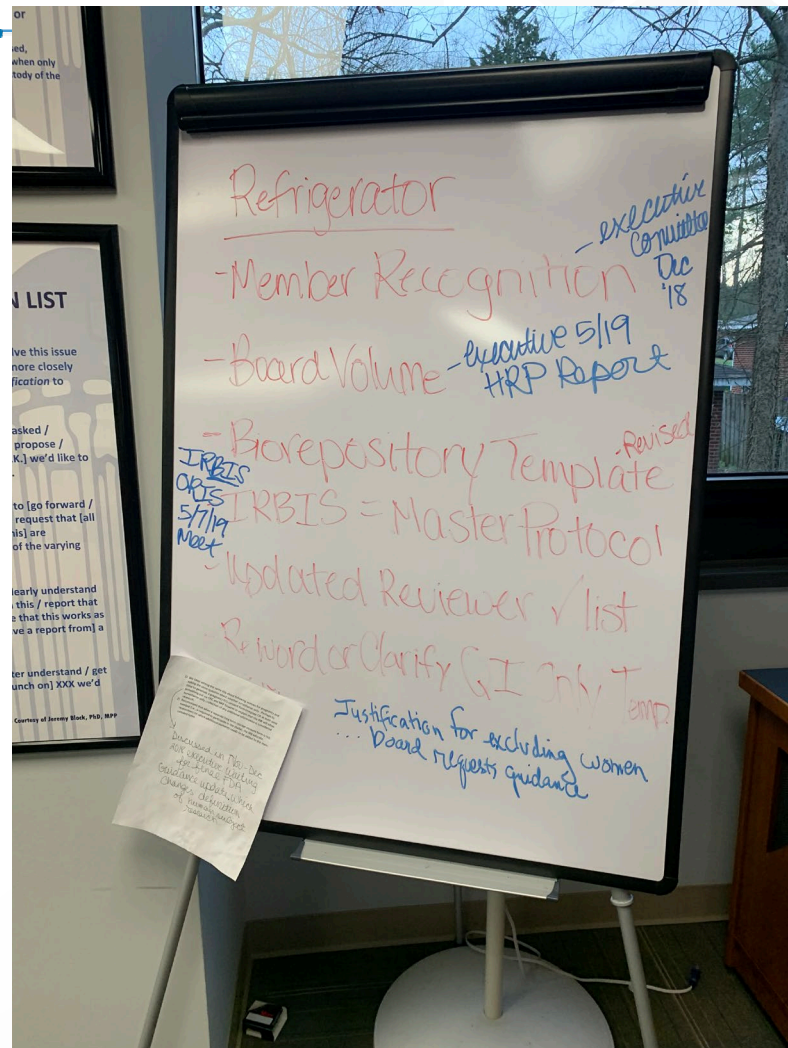 or
ed,
when only
tody of the
N LIST
lve this issue
more closely
fication to
asked /
propose /
.K.] we'd like to
to [go forward /
request that [all
his] are
of the varying
early understand
this / report that
e that this works as
ve a report from] a
ter understand / get
unch on] XXX we'd
Courtesy of Jeremy Block, PhD, MPP
Refrigerator
- Member Recognition
- executive
Committee
Dec
'18
- Board Volume
- executive 5/19
HRP Report
- Biorepository Template
- Revised
IRBIS
ORIS
5/7/19
Meet
IRBIS = Master Protocol
- Updated Reviewer √ list
- Reword or Clarify GI Only Temp.
Justification for excluding women
... board requests guidance
Discussed in Nov-Dec
executive waiting
for final FDA
Guidance update, which
changes definition
of human subject
research